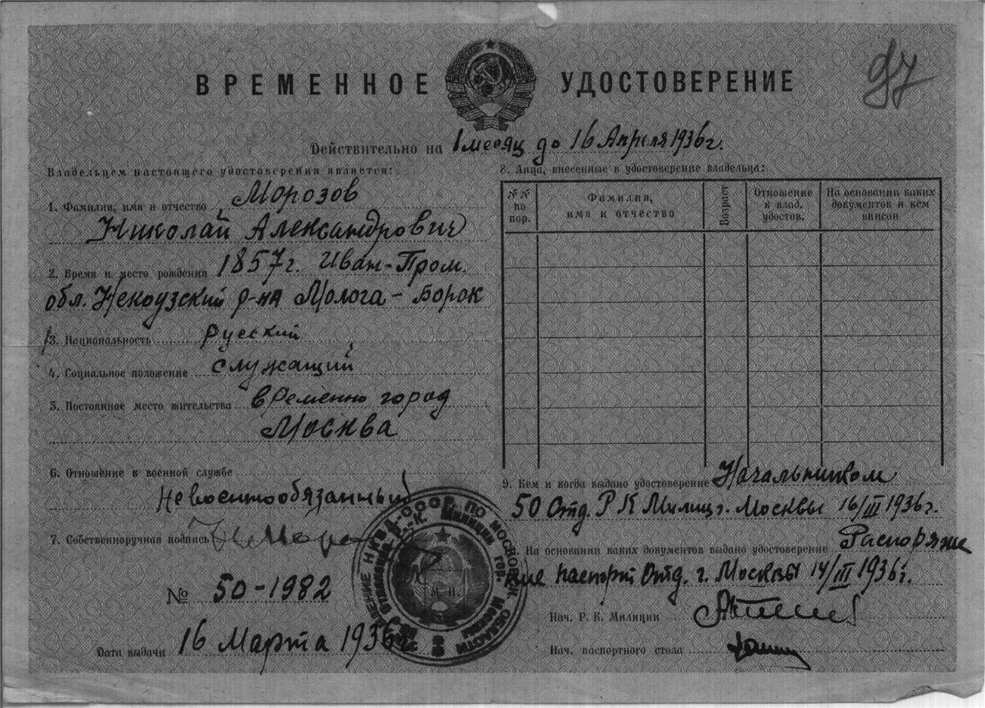 97
ВРЕМЕННОЕ УДОСТОВЕРЕНИЕ
Действительно на 1 месяц до 16 Апреля 1936 г.
Владельцем настоящего удостоверения является:
1. Фамилия, имя и отчество Морозов
Николай Александрович
2. Время и место рождения 1857 г. Иван-Пром.
обл. Некоузский р-на Молога-Борок
3. Национальность русский
4. Социальное положение служащий
5. Постоянное место жительства временно город
Москва
6. Отношение к военной службе
Невоеннообязанный
7. Собственноручная подпись
№ 50-1982
Дата выдачи 16 Марта 1936 г.
8. Лица, внесенные в удостоверение владельца:
№№ по пор.
Фамилия, имя и отчество
Возраст
Отношение к влад. удостов.
На основании каких документов и кем вписан
9. Кем и когда выдано удостоверение Начальником
50 Отд. Р К Милиц г. Москвы 16/III 1936 г.
На основании каких документов выдано удостоверение Распоряже
ние паспорт Отд. г. Москвы 14/III 1936 г.
Нач. Р. К. Милиции
Нач. паспортного стола
М. П.